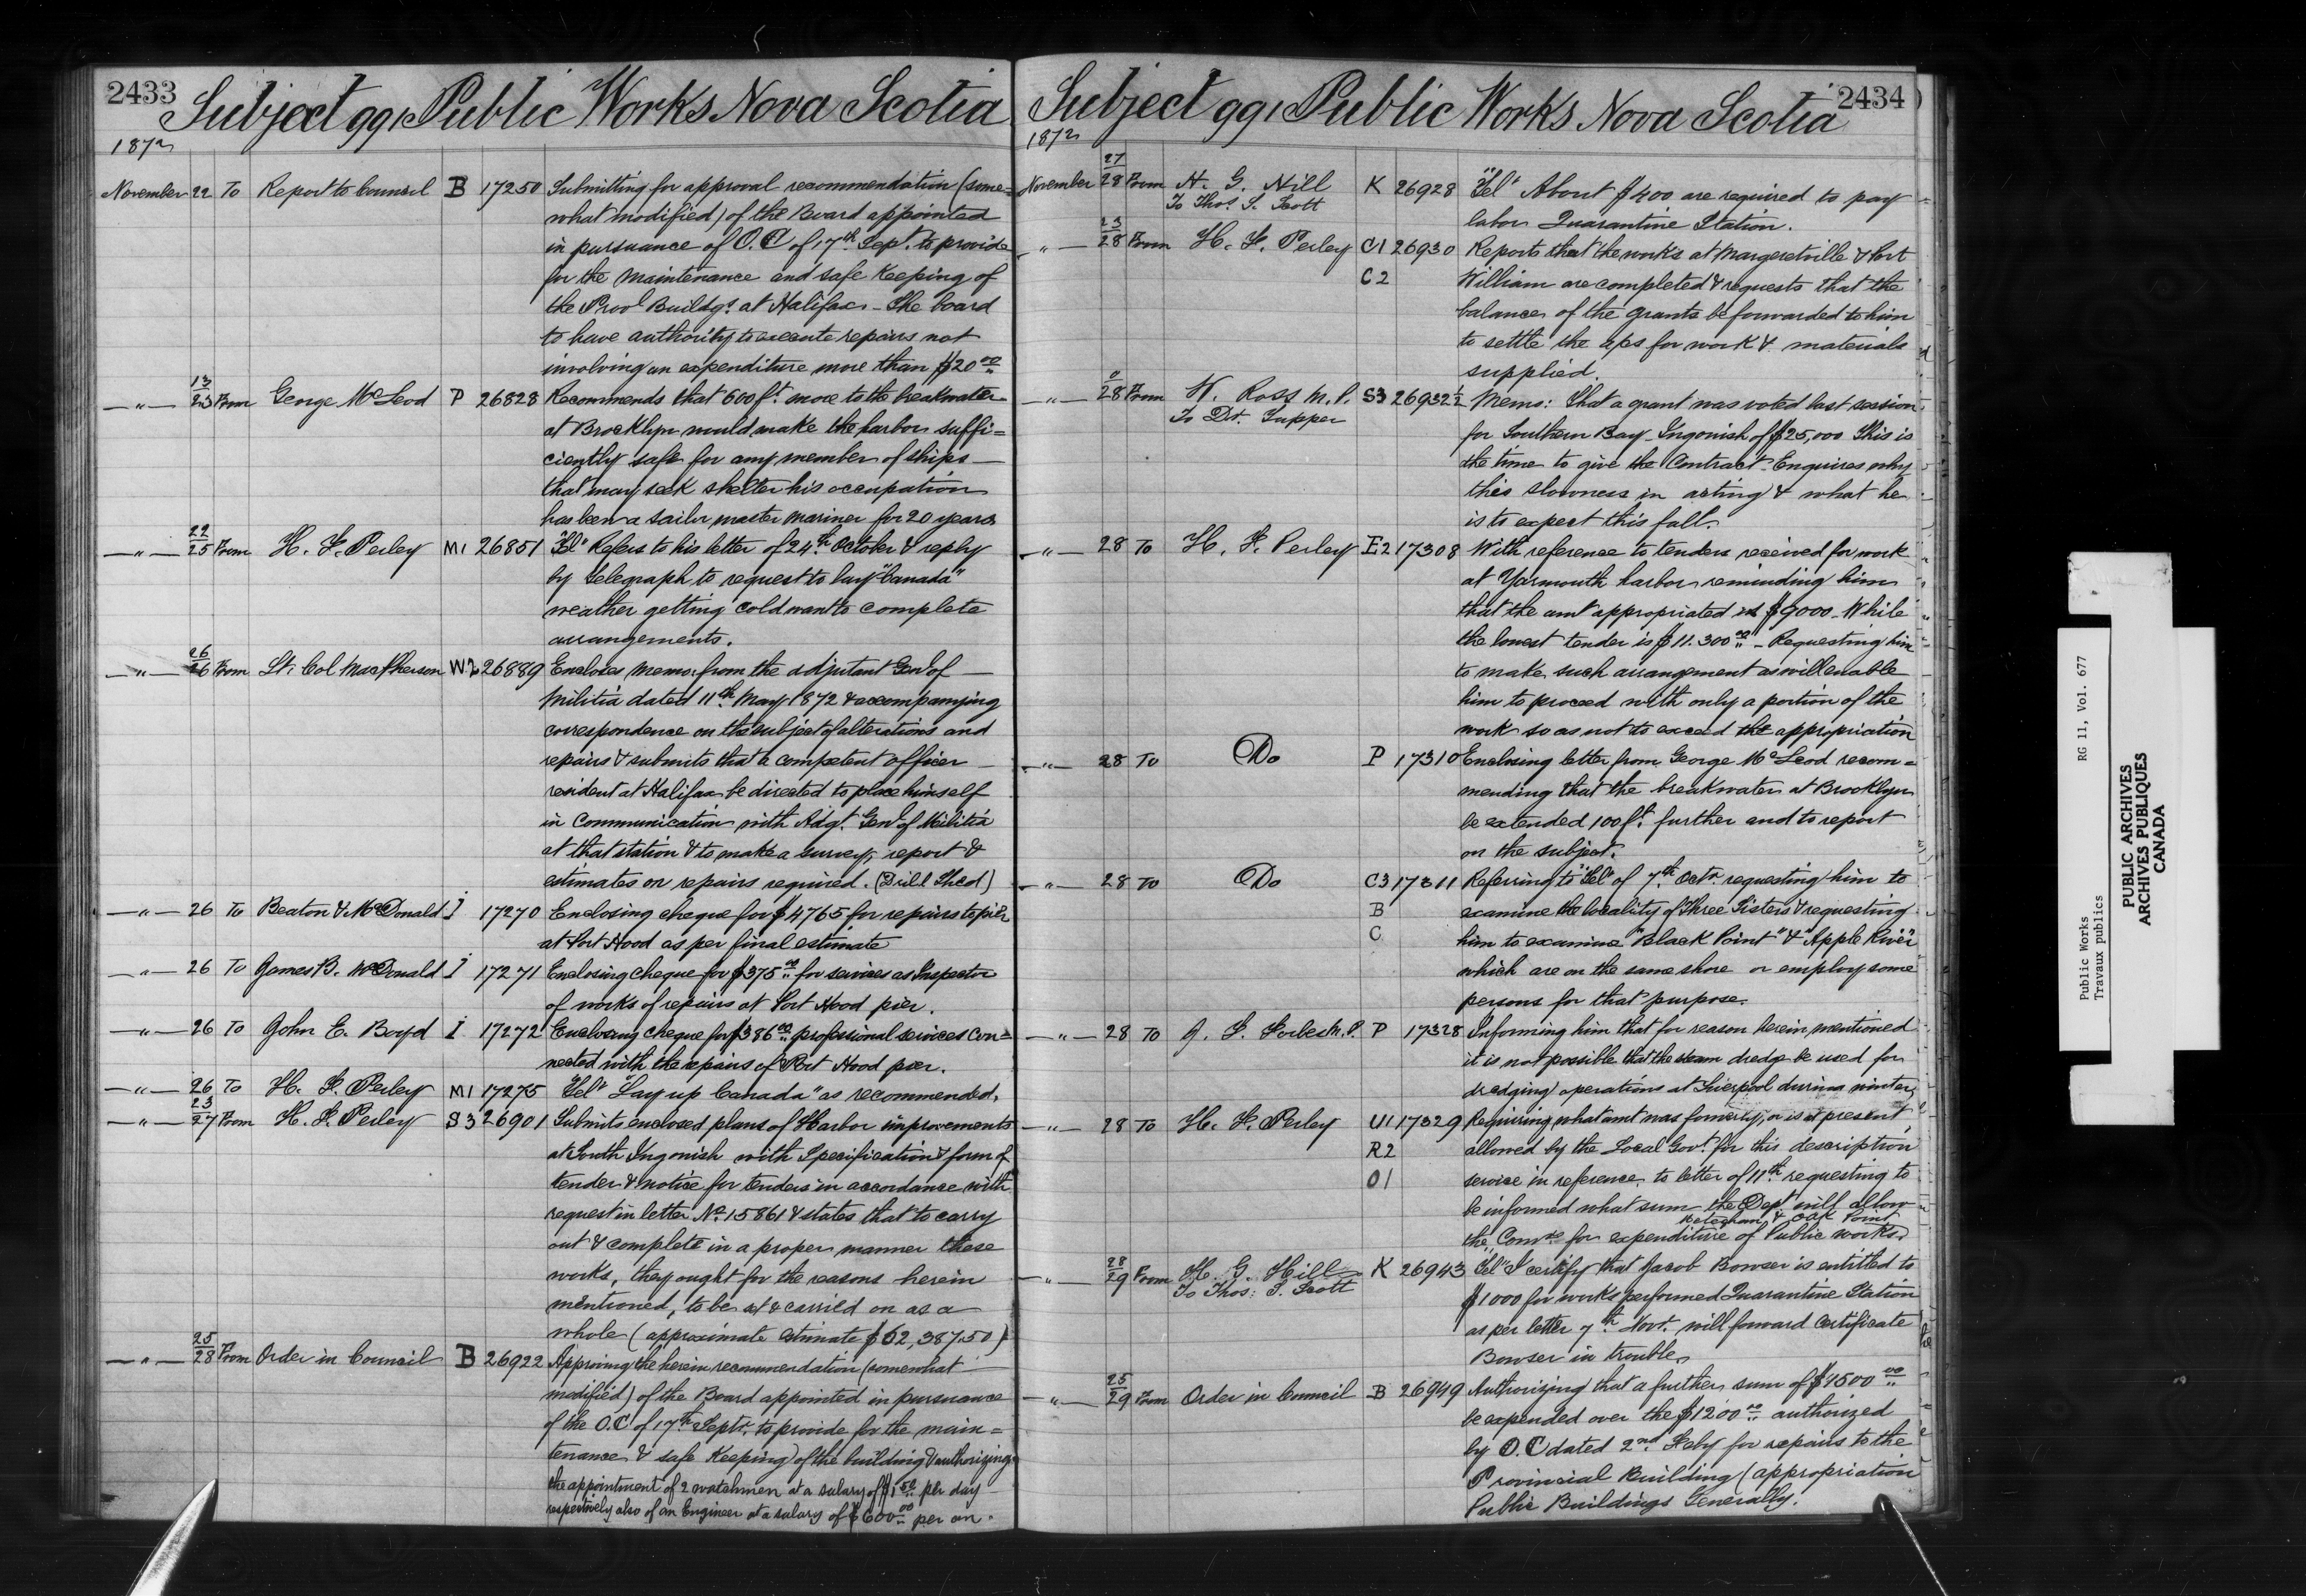 2433
Subject 991 Public Works Nova Scotia
1872
November 22 To Report to Council B 17250 Submitting for approval recommendation (some=
what modified) of the Board appointed
in pursuance of O.C of 17th Sept. to provide
for the maintenance and safe keeping of
the Provl Buildgs. at Halifax - The board
to have authority to execute repairs not
involving an expenditure more than $20 00
— " — 13/23 From George McLeod P 26828 Recommends that 600 ft. more to the breakwater
at Brooklyn would make the harbor suffi=
ciently safe for any member of ships —
that may seek shelter his occupation
has been a sailor master mariner for 20 years
— " — 22/25 From H. F. Perley M1 26851 "Tel" Refers to his letter of 24th October & reply
by Telegraph to request to lay "Canada"
weather getting cold wants complete
arrangements.
— " — 26/26 From Lt. Col MacPherson W2 26889 Encloses memo. from the adjutant Genl of —
Militia dated 11th May 1872 & accompanying
correspondence on the subject of alterations and
repairs & submits that a competent officer —
resident at Halifax be directed to place himself
in communication with Adgt. Genl of Militia
at that station & to make a survey, report &
estimates on repairs required. (Drill Shed)
— " — 26 To Beaton & McDonald I 17270 Enclosing cheque for $4765 for repairs to pier
at Port Hood as per final estimate
— " — 26 To James B. McDonald I 17271 Enclosing cheque for $375 00 for services as Inspector
of works of repairs at Port Hood pier.
— " — 26 To John E. Boyd I 17272 Enclosing cheque for $386 00 professional services con=
nected with the repairs of Port Hood pier.
— " — 26 To H. F. Perley M1 17275 "Tel" "Lay up Canada" as recommended.
— " — 23/27 From H. F. Perley S3 26901 Submits enclosed plans of Harbor improvements
at South Ingonish with Specification & form of
tender & notice for tenders in accordance with
request in letter No. 15861 & states that to carry
out & complete in a proper manner these
works, they ought for the reasons herein
mentioned, to be let & carried on as a
whole (approximate estimate $62,387.50)
— " — 25/28 From Order in Council B 26922 Approving the herein recommendation (somewhat
modified) of the Board appointed in pursuance
of the O.C of 17th Septr. to provide for the main=
tenance & safe keeping of the building & authorizing
the appointment of 2 watchmen at a salary of $1 50 per day
respectively also of an Engineer at a salary of $600 00 per an.
2434
Subject 991 Public Works Nova Scotia
1872
November 27/28 From H. G. Hill K 26928 "Tel" About $400 are required to pay
To Thos. S. Scott labor Quarantine Station.
— " — 23/28 From H. F. Perley C1 26930 Reports that the works at Margeretville & Port
C2 William are completed & requests that the
balance of the grants be forwarded to him
to settle the a/cs for work & materials
supplied.
— " — 0/28 From W. Ross M.P. S3 26932½ Memo: That a grant was voted last session
To Dr. Tupper for Southern Bay - Ingonish of $25,000 This is
the time to give the Contract - Enquires why
this slowness in acting & what he
is to expect this fall.
— " — 28 To H. F. Perley E2 17308 With reference to tenders received for work
at Yarmouth harbor reminding him
that the amt appropriated is $9000 - While
the lowest tender is $11.300 00 - Requesting him
to make such arrangement as will enable
him to proceed with only a portion of the
work so as not to exceed the appropriation
— " — 28 To Do P 17310 Enclosing letter from George McLeod recom=
mending that the breakwater at Brooklyn
be extended 100 ft. further and to report
on the subject.
— " — 28 To Do C3 17311 Referring to "Tel" of 7th Octr. requesting him to
B examine the locality of Three Sisters & requesting
C him to examine "Black Point" & "Apple River"
which are on the same shore or employ some
persons for that purpose.
— " — 28 To J. F. Forbes M.P. P 17328 Informing him that for reason herein mentioned
it is not possible that the steam dredge be used for
dredging operations at Liverpool during winter
— " — 28 To H. F. Perley U1 17329 Requiring what amt was formerly, or is at present,
R2 allowed by the Local Govt. for this description
O1 service in reference to letter of 11th requesting to
be informed what sum the Dept. will allow
Meteghan & Oak Point
the Comrs for expenditure of Public works.
— " — 28/29 From H. G. Hill K 26943 "Tel" I certify that Jacob Bowser is entitled to
To Thos: S. Scott $1000 for works performed Quarantine Station
as per letter 7th Novr. will forward certificate
Bowser in trouble.
— " — 25/29 From Order in Council B 26949 Authorizing that a further sum of $4500 00
be expended over the $1200 00 authorized
by O.C dated 2nd Feby for repairs to the
Provincial Building (appropriation
Public Buildings Generally.
Public Works RG 11, Vol. 677
Travaux publics
PUBLIC ARCHIVES
ARCHIVES PUBLIQUES
CANADA